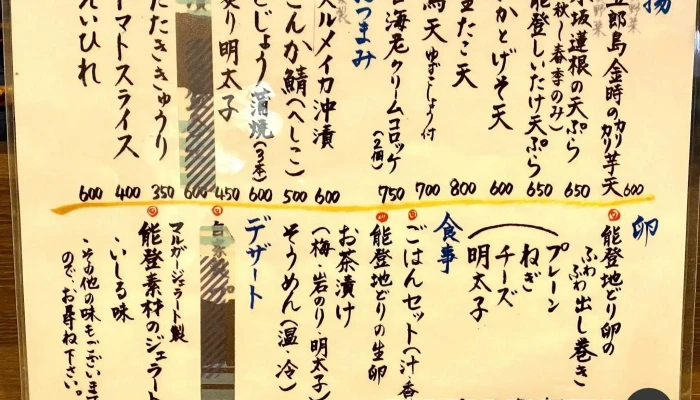 揚
五郎島金時のカリカリ芋天 600
小坂蓮根の天ぷら 650
(秋~春季のみ)
能登しいたけ天ぷら 650
いかとげそ天 600
たこ天 800
天 ゆずこしょう付 700
海老クリームコロッケ(2個) 750
おつまみ
スルメイカ沖漬 600
こんか鯖(へしこ) 500
どじょう蒲焼(3本) 600
炙り明太子 450
600
たたききゅうり 350
トマトスライス 400
えいひれ 600
卵
能登地どり卵の
ふわふわ出し巻き
プレーン
ねぎ
チーズ
明太子
食事
ごはんセット(汁・香
能登地どりの生卵
お茶漬け
(梅・岩のり・明太子)
そうめん(温・冷)
デザート
マルガージェラート製
能登素材のジェラート
・いしる味
・その他の味もございます
ので、お尋ね下さい。